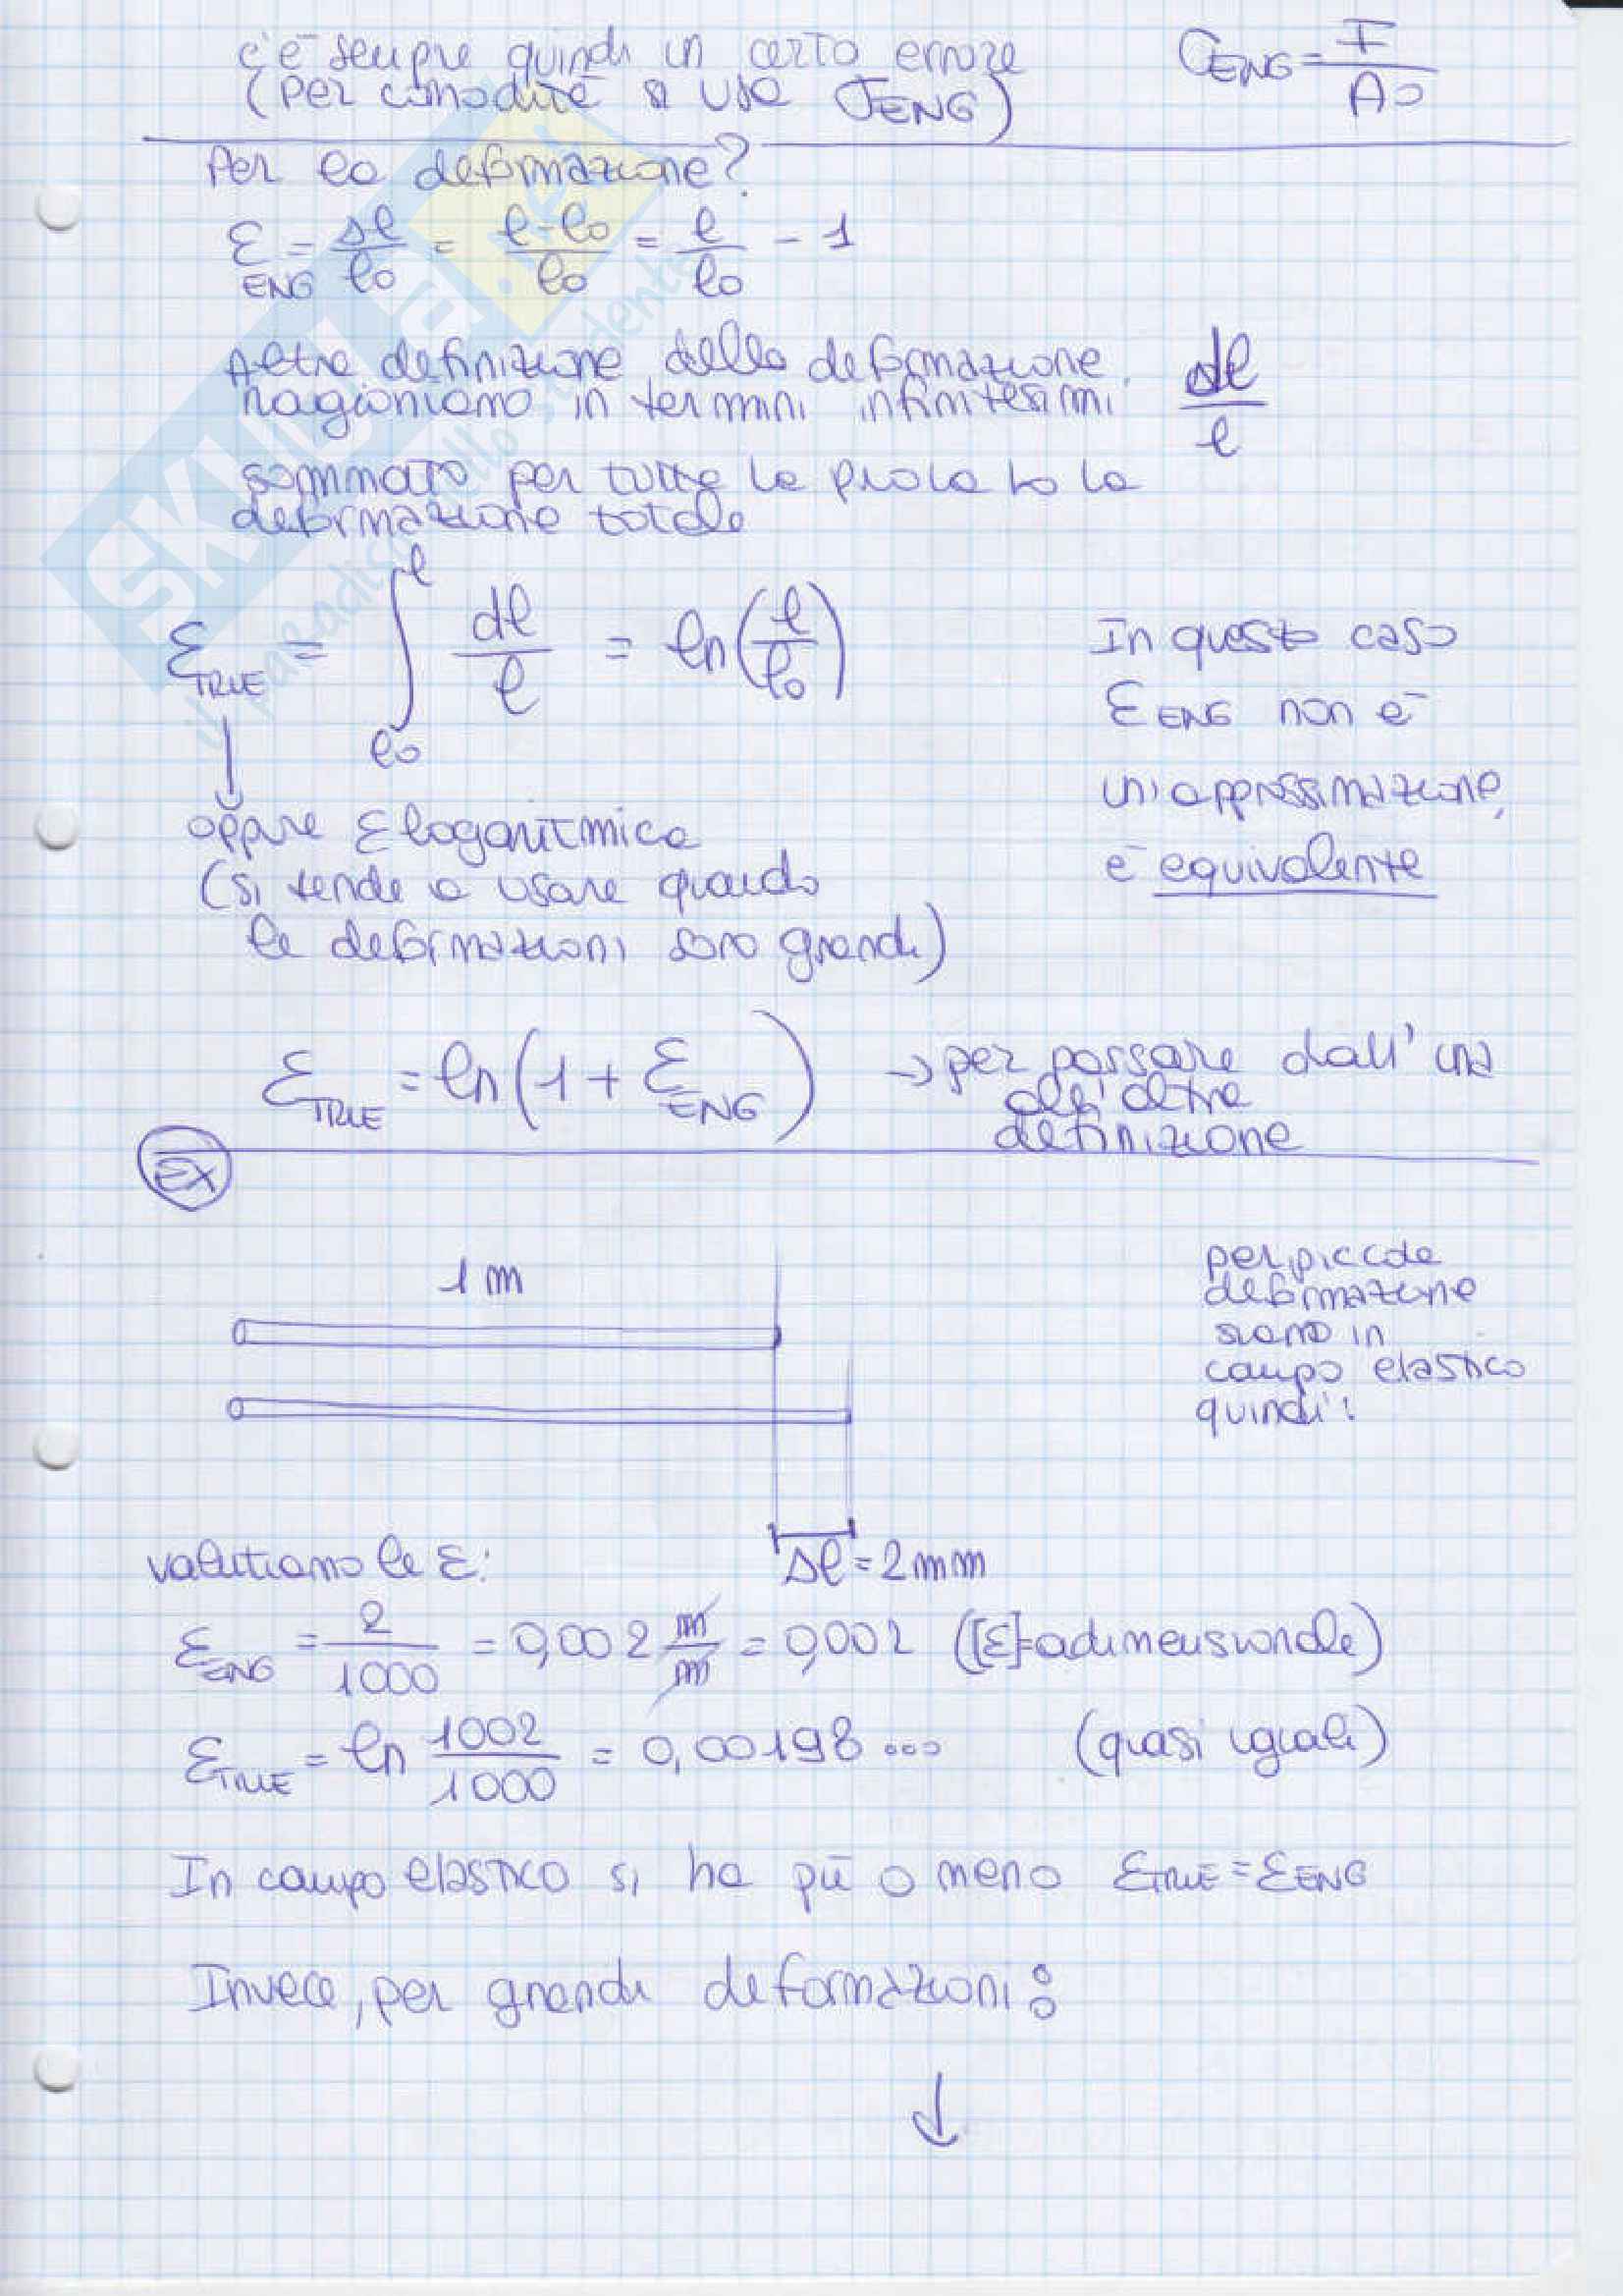 c'è sempre quindi un certo errore
(per comodità si usa σENG)
σENG = F/A0
Per la deformazione?
εENG = Δl/l0 = (l-l0)/l0 = l/l0 - 1
Altra definizione della deformazione.
ragioniamo in termini infinitesimi
dl/l
sommato per tutta la prova ho la
deformazione totale
εTRUE = ∫l0^l dl/l = ln(l/l0)
In questo caso
εENG non è
un'approssimazione,
è equivalente
↓
oppure ε logaritmica
(si tende a usare quando
le deformazioni sono grandi)
εTRUE = ln(1 + εENG)
→ per passare dall'una
all'altra
definizione
EX
1 m
per piccole
deformazione
siamo in
campo elastico
quindi:
Δl = 2mm
valutiamo le ε:
εENG = 2/1000 = 0,002 m/m = 0,002 ([ε]=adimensionale)
εTRUE = ln 1002/1000 = 0,00198... (quasi uguali)
In campo elastico si ha più o meno εTRUE = εENG
Invece, per grandi deformazioni:
↓
SKUOLA.NET
il paradiso dello studente